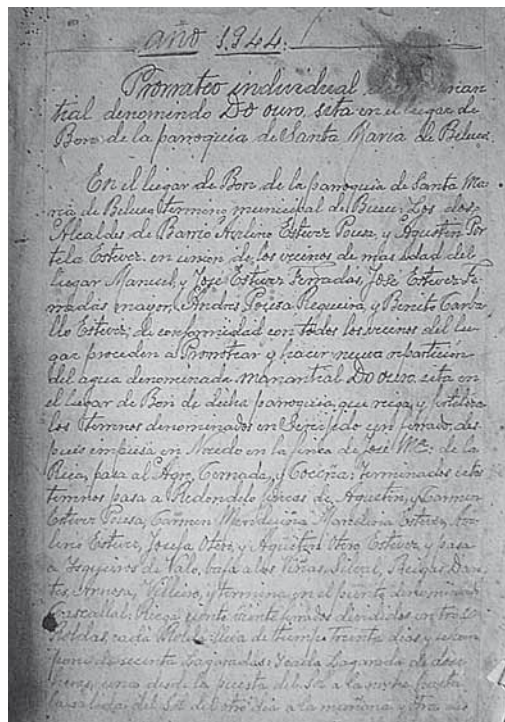 año 1.944.
Prorrateo individual manan
tial denominado DO ouro, sita en el lugar de
Bon de la parroquia de Santa Maria de Beluso.
En el lugar de Bon de la parroquia de Santa Ma
ria de Beluso, termino municipal de Bueu: Los dos
Alcaldes de Barrio Avelino Estevez Pousa, y Agustin Por
tela Estevez, en union de los vecinos de mas edad del
lugar Manuel, y Jose Estevez Ferradás, José Estevez Fe
rradás mayor, Andres Pousa Requeira, y Benito Carba
llo Estevez; de conformidad con todos los vecinos del lu
gar proceden a Prorratear y hacer nueva reparticion
del agua denominada manantial DO ouro, sita en
el lugar de Bon de dicha parroquia, que riega, y fertiliza
los terrenos denominados en un ferrado, des
pues empieza en Nocedo en la finca de José Mª. de la
Riega, pasa al Agro, y Coceña: Terminados estos
terrenos pasa a Redondelo fincas de Agustin, y Carmen
Estevez Pousa, Carmen Marcelina Estevez,
Estevez, Josefa Otero, y Agustin Otero Estevez, y pasa
a de Valo, baja a las Viñas,
y termina en el puente denominado
Riega, veinte ferrados divididos en tres
Roldas, cada Rolda lleva de tiempo treinta dias y se com
pone de sesenta Lagaradas: y cada Lagarada de doce
horas, una desde la puesta del Sol a la noche hasta
la salida del Sol del a la mañana y otra